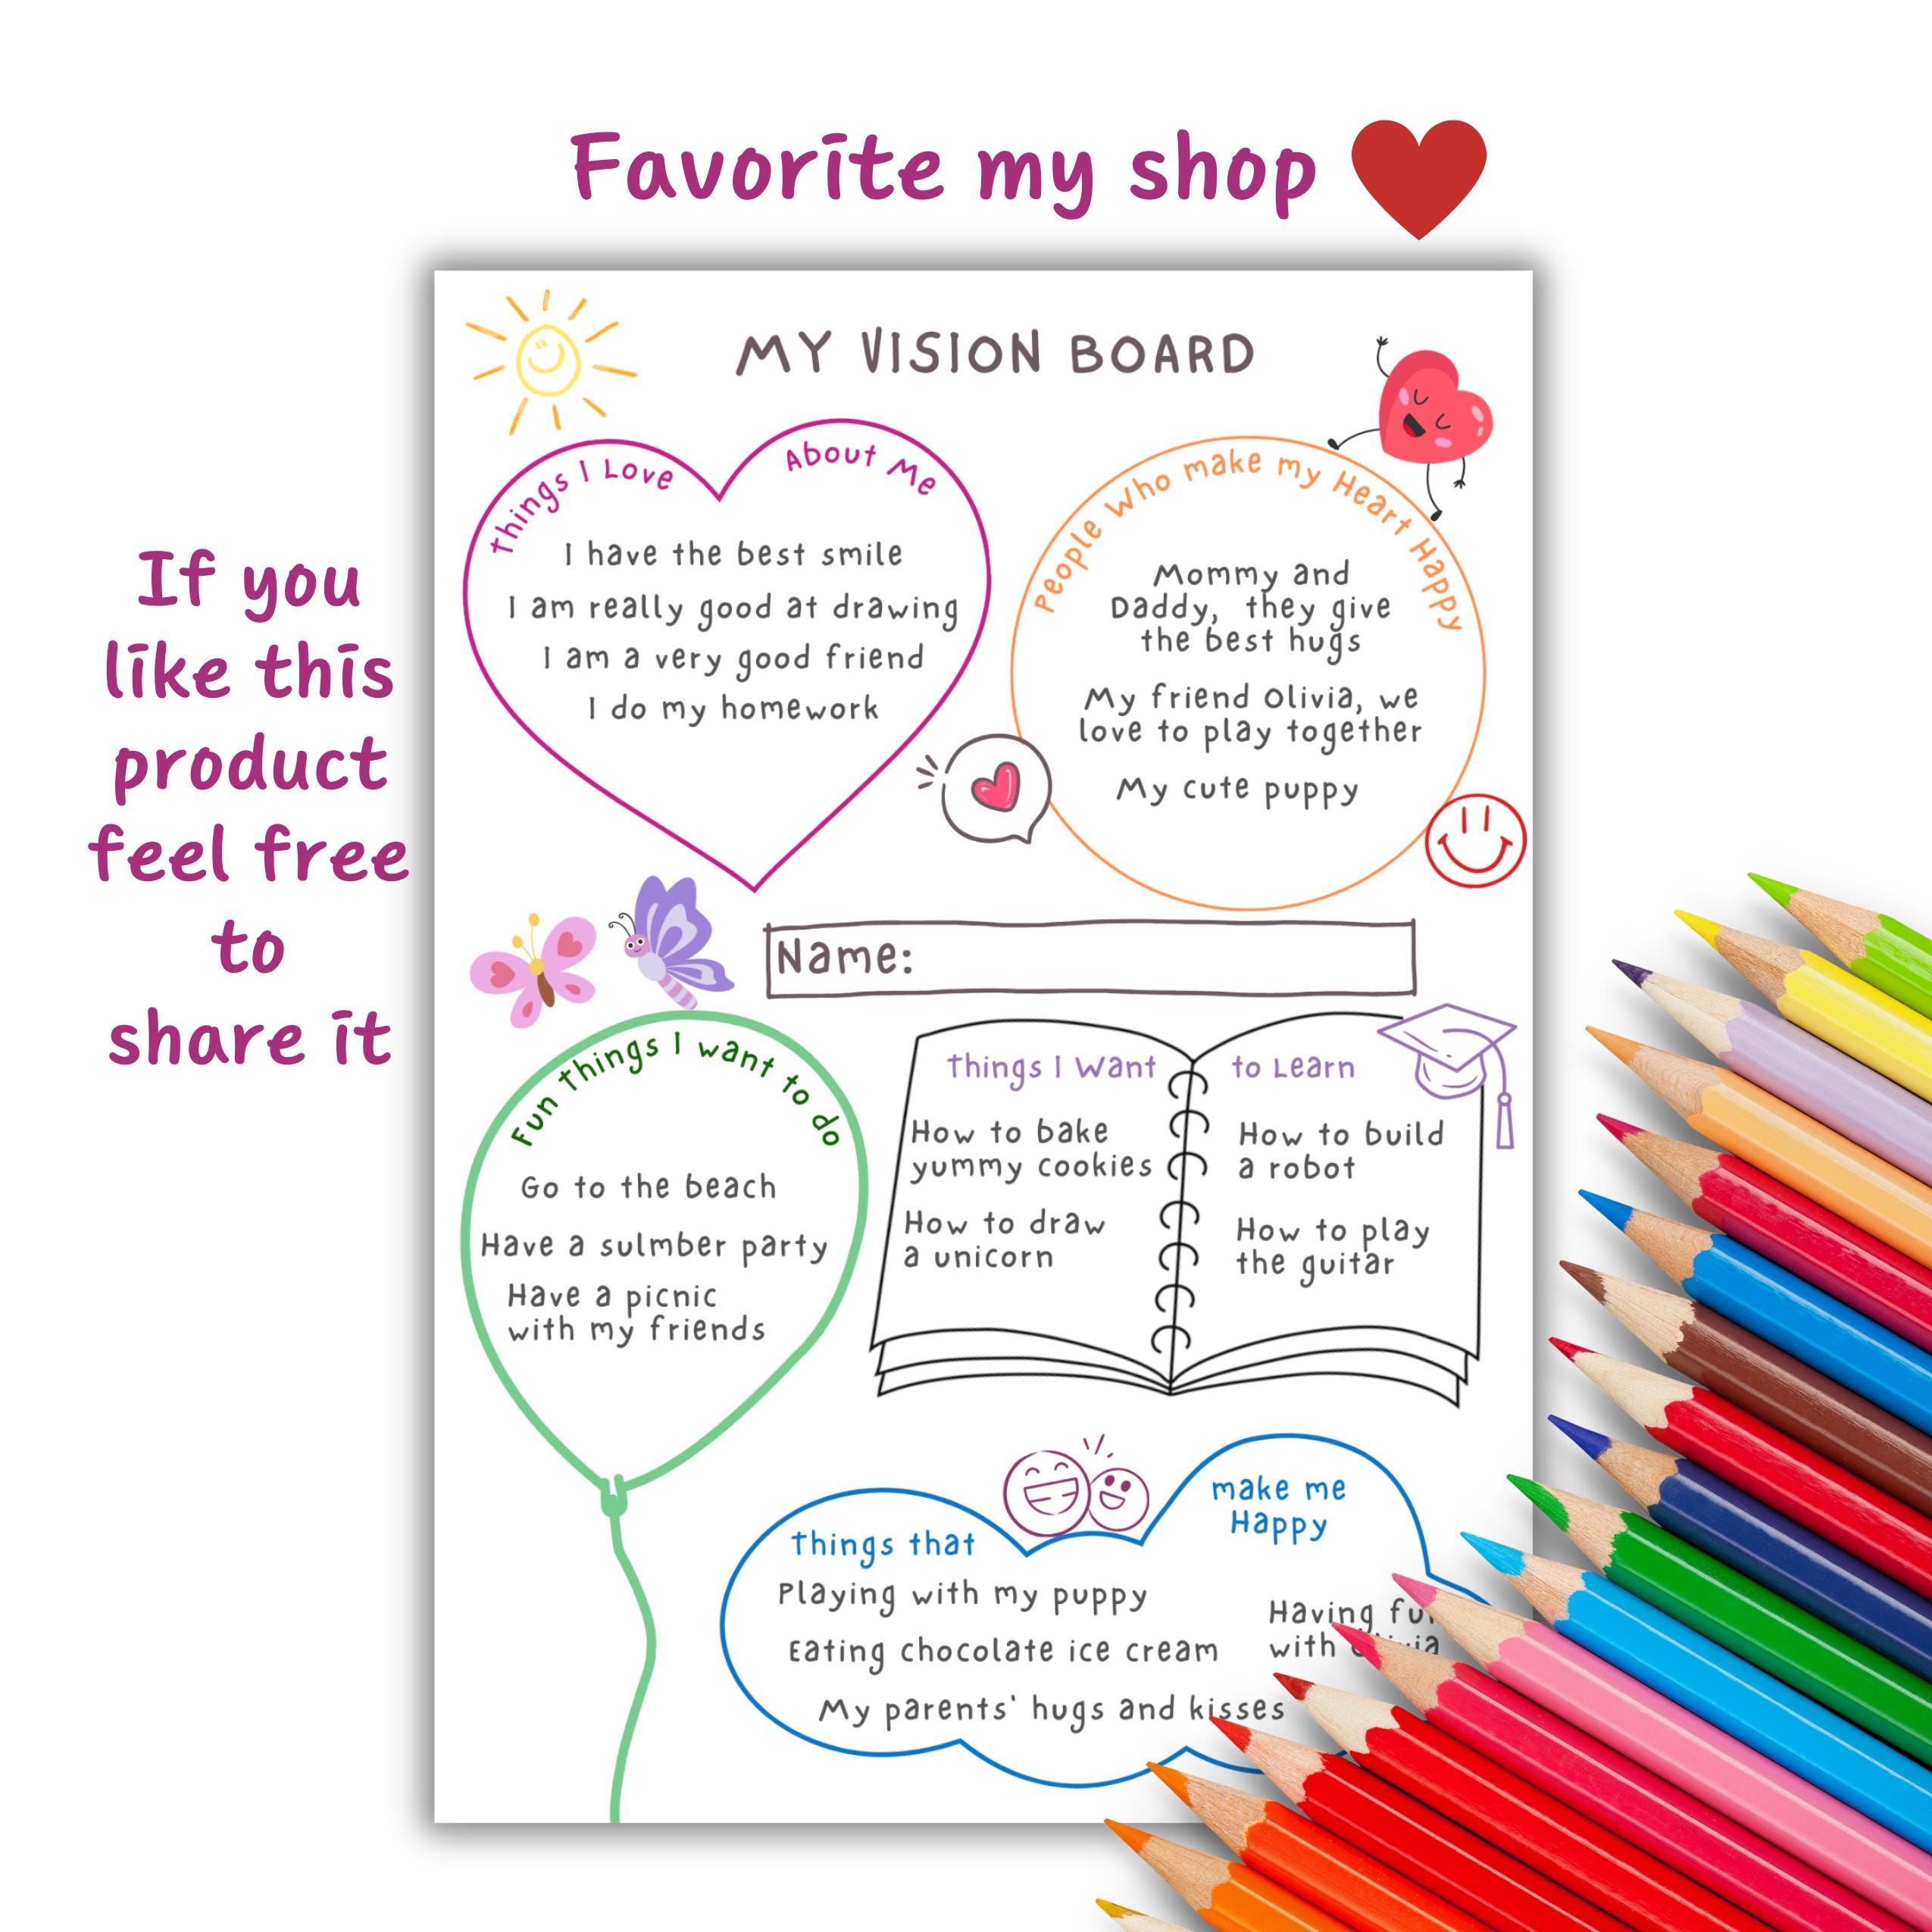 Favorite my shop
If you
like this
product
feel free
to
share it
MY VISION BOARD
Things I Love About Me
I have the best smile
I am really good at drawing
I am a very good friend
I do my homework
People Who make my Heart Happy
Mommy and
Daddy, they give
the best hugs
My friend Olivia, we
love to play together
My cute puppy
Name:
Fun things I want to do
Go to the beach
Have a sulmber party
Have a picnic
with my friends
Things I Want to Learn
How to bake
yummy cookies
How to draw
a unicorn
How to build
a robot
How to play
the guitar
Things that make me
Happy
Playing with my puppy
Eating chocolate ice cream
My parents' hugs and kisses
Having
with